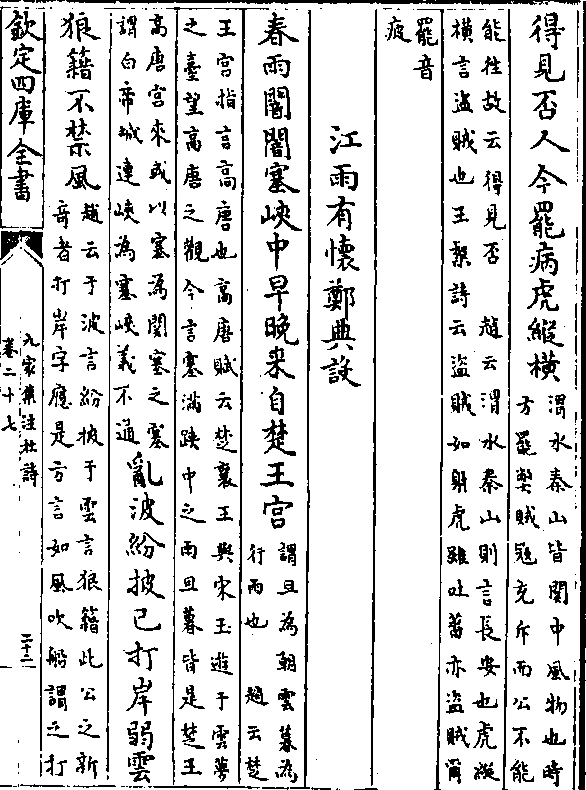 得見否人今罷病虎縱橫
渭水秦山皆關中風物也時
方罷弊賊冦充斥而公不能
能往故云得見否　趙云渭水秦山則言長安也虎縱
橫言盜賊也王粲詩云盜賊如豺虎雖吐蕃亦盜賊爾
罷音
疲
江雨有懷鄭典設
春雨闇闇塞峽中早晚來自楚王宫
謂旦為朝雲暮為
行雨也　趙云楚
王宮指言高唐也高唐賦云楚襄王與宋玉遊于雲夢
之臺望高唐之觀今言塞滿峽中之雨旦暮皆是楚王
高唐宮來或以塞為關塞之塞
謂白帝城連峽為塞峽義不通
亂波紛披已打岸弱雲
狼籍不禁風
趙云于波言紛披于雲言狼籍此公之新
奇者打岸字應是方言如風吹船謂之打
欽定四庫全書
九家集注杜詩
卷二十七
二十二